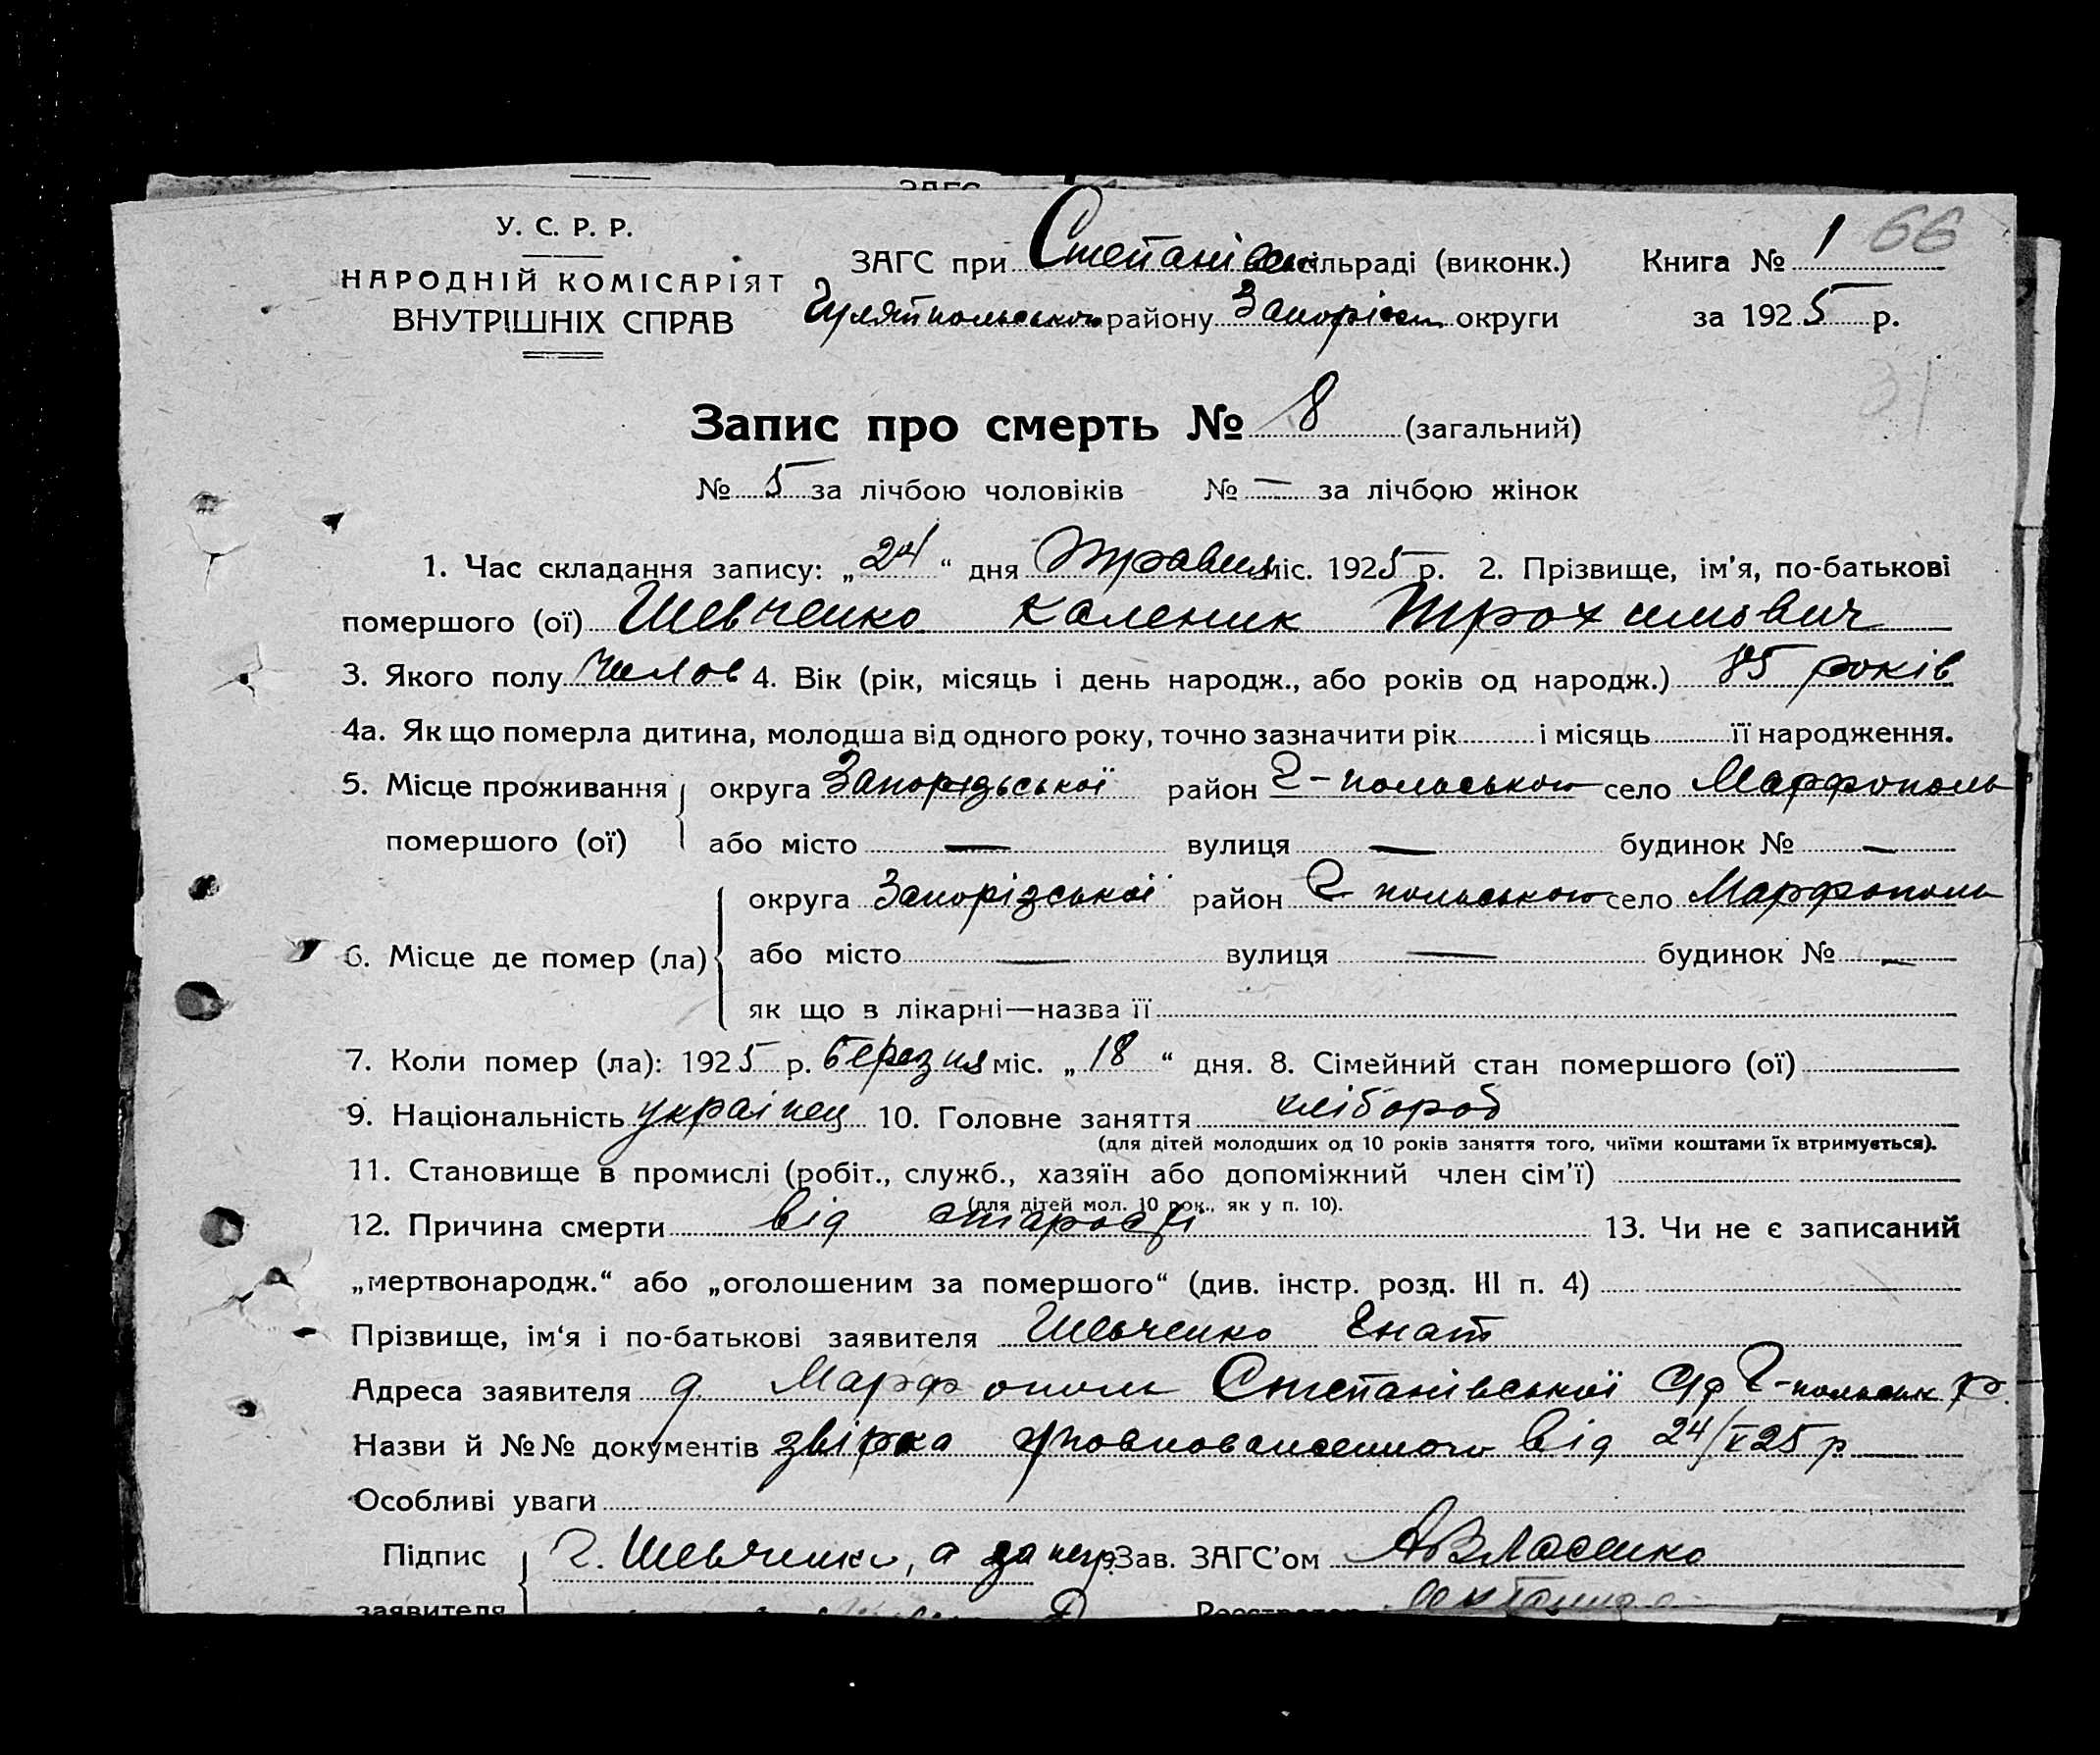 У. С. Р. Р.
НАРОДНІЙ КОМІСАРІЯТ
ВНУТРІШНІХ СПРАВ
ЗАГС при Степанівськ сільраді (виконк.) Книга № 1 66
Гуляйпольського району Запоріськ округи за 1925 р.
31
Запис про смерть № 8 (загальний)
№ 5 за лічбою чоловіків № — за лічбою жінок
1. Час складання запису: „24“ дня Травня міс. 1925 р. 2. Прізвище, ім'я, по-батькові
помершого (ої) Шевченко Каленик Трохимович
3. Якого полу Чолов 4. Вік (рік, місяць і день народж., або років од народж.) 85 років
4а. Як що померла дитина, молодша від одного року, точно зазначити рік і місяць її народження.
5. Місце проживання помершого (ої) округа Запорізьської район Г-польського село Марфополь
або місто — вулиця — будинок № —
6. Місце де помер (ла) округа Запорізської район Г польського село Марфополь
або місто — вулиця — будинок № —
як що в лікарні—назва її
7. Коли помер (ла): 1925 р. березня міс. „18“ дня. 8. Сімейний стан помершого (ої)
9. Національність українец 10. Головне заняття хлібороб
(для дітей молодших од 10 років заняття того, чиїми коштами їх втримується).
11. Становище в промислі (робіт., служб., хазяїн або допоміжний член сім'ї)
(для дітей мол. 10 рок., як у п. 10).
12. Причина смерти від старости 13. Чи не є записаний
„мертвонародж.“ або „оголошеним за помершого“ (див. інстр. розд. III п. 4)
Прізвище, ім'я і по-батькові заявителя Шевченко Гнат
Адреса заявителя д Марфополь Степанівської С/р Г-польськ р.
Назви й №№ документів від 24/V 25 р
Особливі уваги
Підпис заявителя Г. Шевченко, а за негр. Зав. ЗАГС'ом А Власенко
Реєстратор